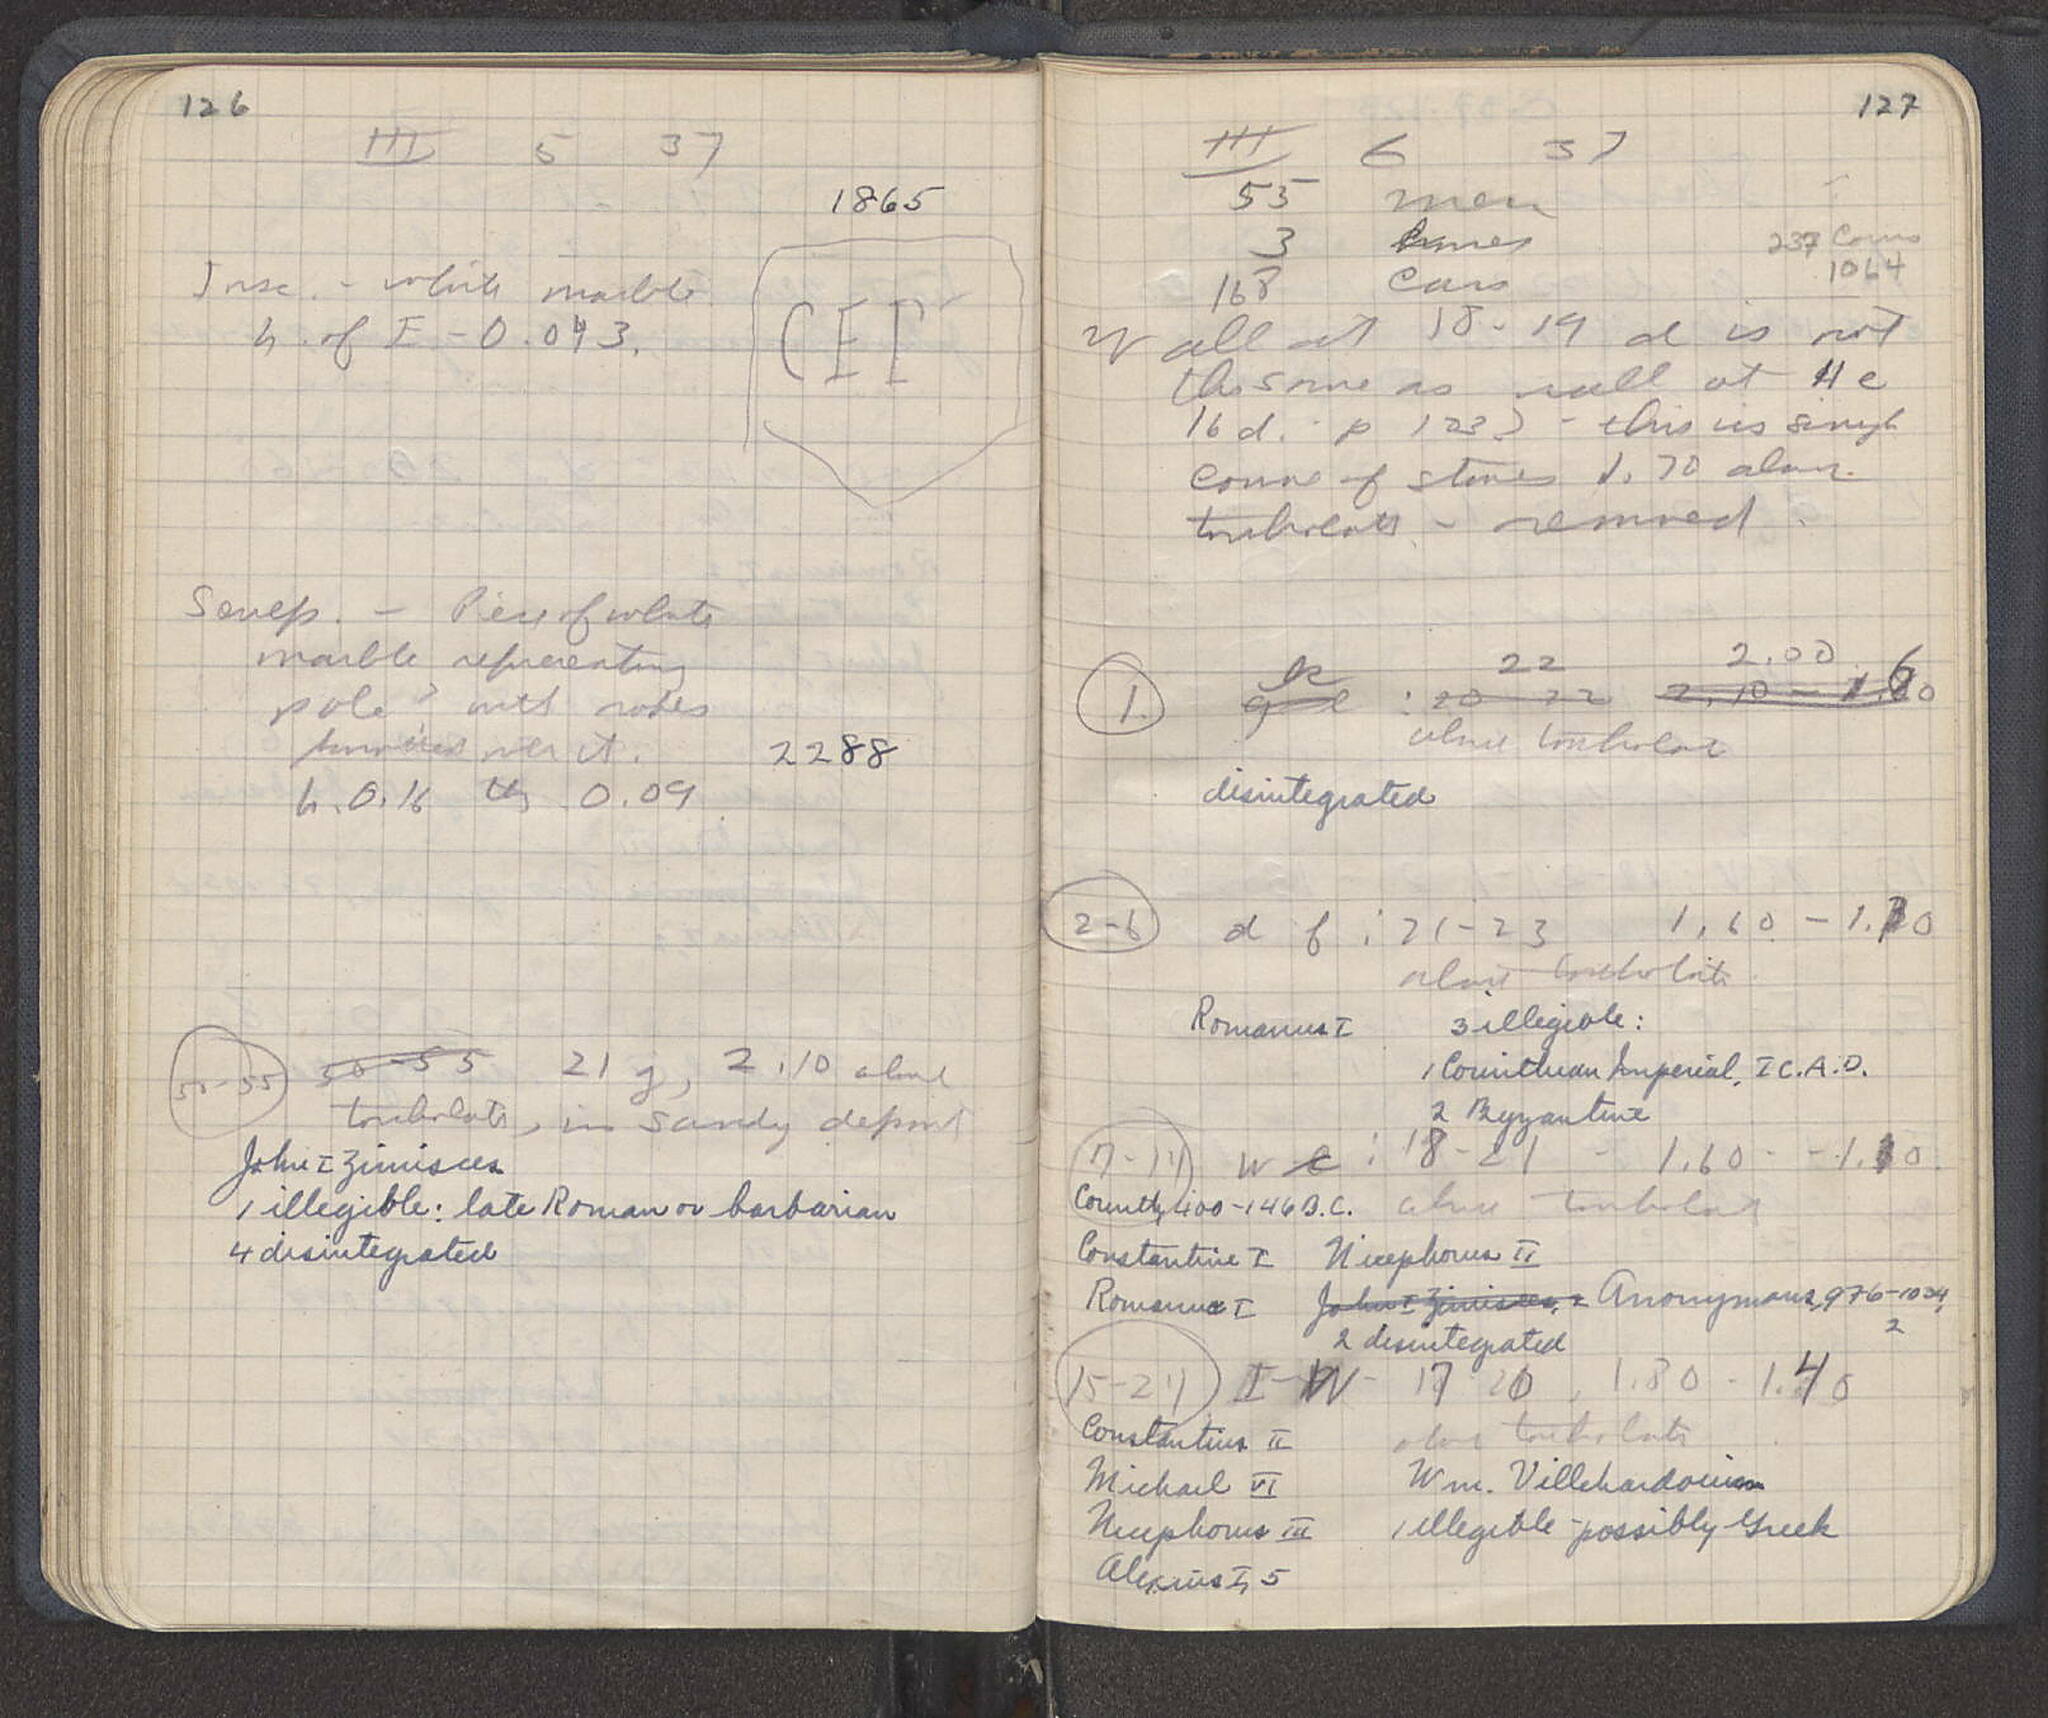 126
III 5 37
1865
Insc. - white marble
h. of E - 0.043.
CEΓ
Sculp. - Piece of white
marble representing
pole? with robes
over it.
2288
h. 0.16 th 0.09
50-55 50-55 21 g, 2.10 above
toichobate, in sandy deposit
John I Zimisces
1 illegible: late Roman or barbarian
4 disintegrated
127
III 6 37
55 men
3
168 cars
237 coins
1064
Wall at 18-19 d is not
the same as wall at
16 d. p 123) - this is single
course of stones 1.70 above
toichobate - removed.
1. k 22 2.00
20-22 2.10 -
above toichobate
disintegrated
2-6 d f : 21-23 1.60 - 1.30
above toichobate
Romanus I 3 illegible:
1 Corinthian Imperial, I C. A.D.
2 Byzantine
7-14 W : 18-21 - 1.60 - 1.10
Corinth, 400-146 B.C. above toichobate
Constantine I Nicephorus II
Romanus I John I Zimisces, 2 Anonymous, 976-1034,
2
2 disintegrated
15-24 I-W- 17 20, 1.80 - 1.40
Constantius II above toichobate
Michael VI Wm. Villehardouin
Nicephorus III 1 illegible - possibly Greek
Alexius I, 5